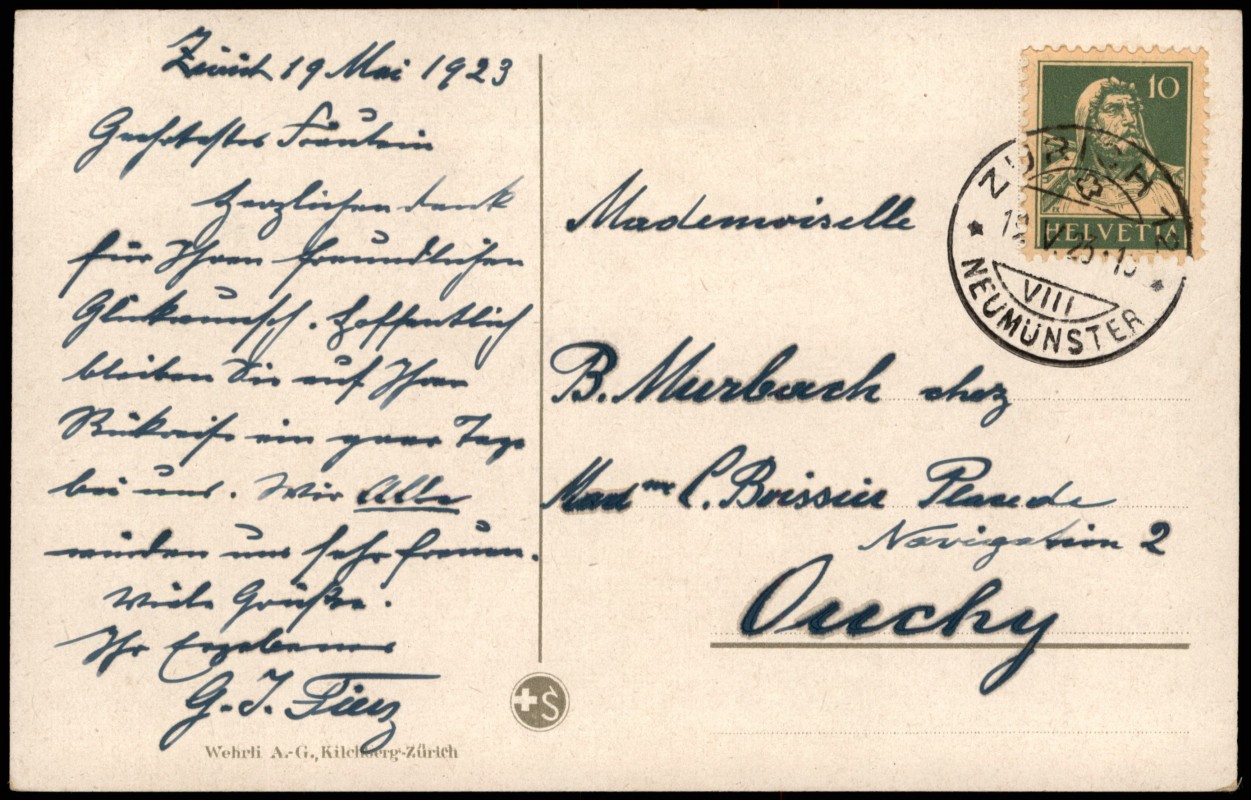 Zürich 19 Mai 1923
Geehrtestes Fräulein
Herzlichen dank
für Ihren freundlichen
Glückwunsch. Hoffentlich
bleiben Sie auf Ihrer
Rükreise ein paar Tage
bei uns. Wir Alle
würden uns sehr freuen.
Viele Grüße.
Ihr Ergebener
G. J.
Wehrli A.-G., Kilchberg-Zürich
+S
10
HELVETIA
ZÜRICH 12
VIII
NEUMÜNSTER
Mademoiselle
B. Murbach chez
Madme C. Boissier Place de
Navigation 2
Ouchy